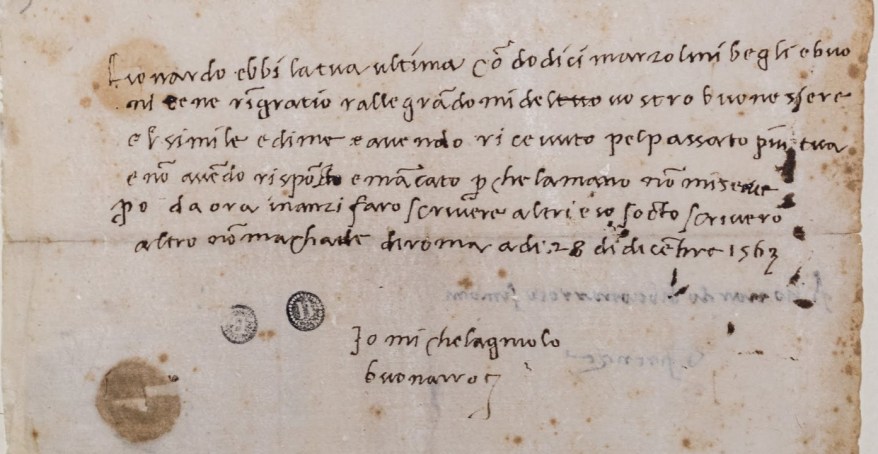 Lionardo ebbi la tua ultima cō dodici marzolini begli e buo
ni e te ne rīgratio rallegrādomi del vostro buono essere
e 'l simile è di me e avendo ricevuto pel passato piu tua
e nō avēdo risposto e mācato p che la mano nō mi serve
po da ora inanzi farò scrivere altri e io sotto scriverò
altro nō m achade di roma a di 28 di dicēbre 1563
Io michelagniolo
buonarroti